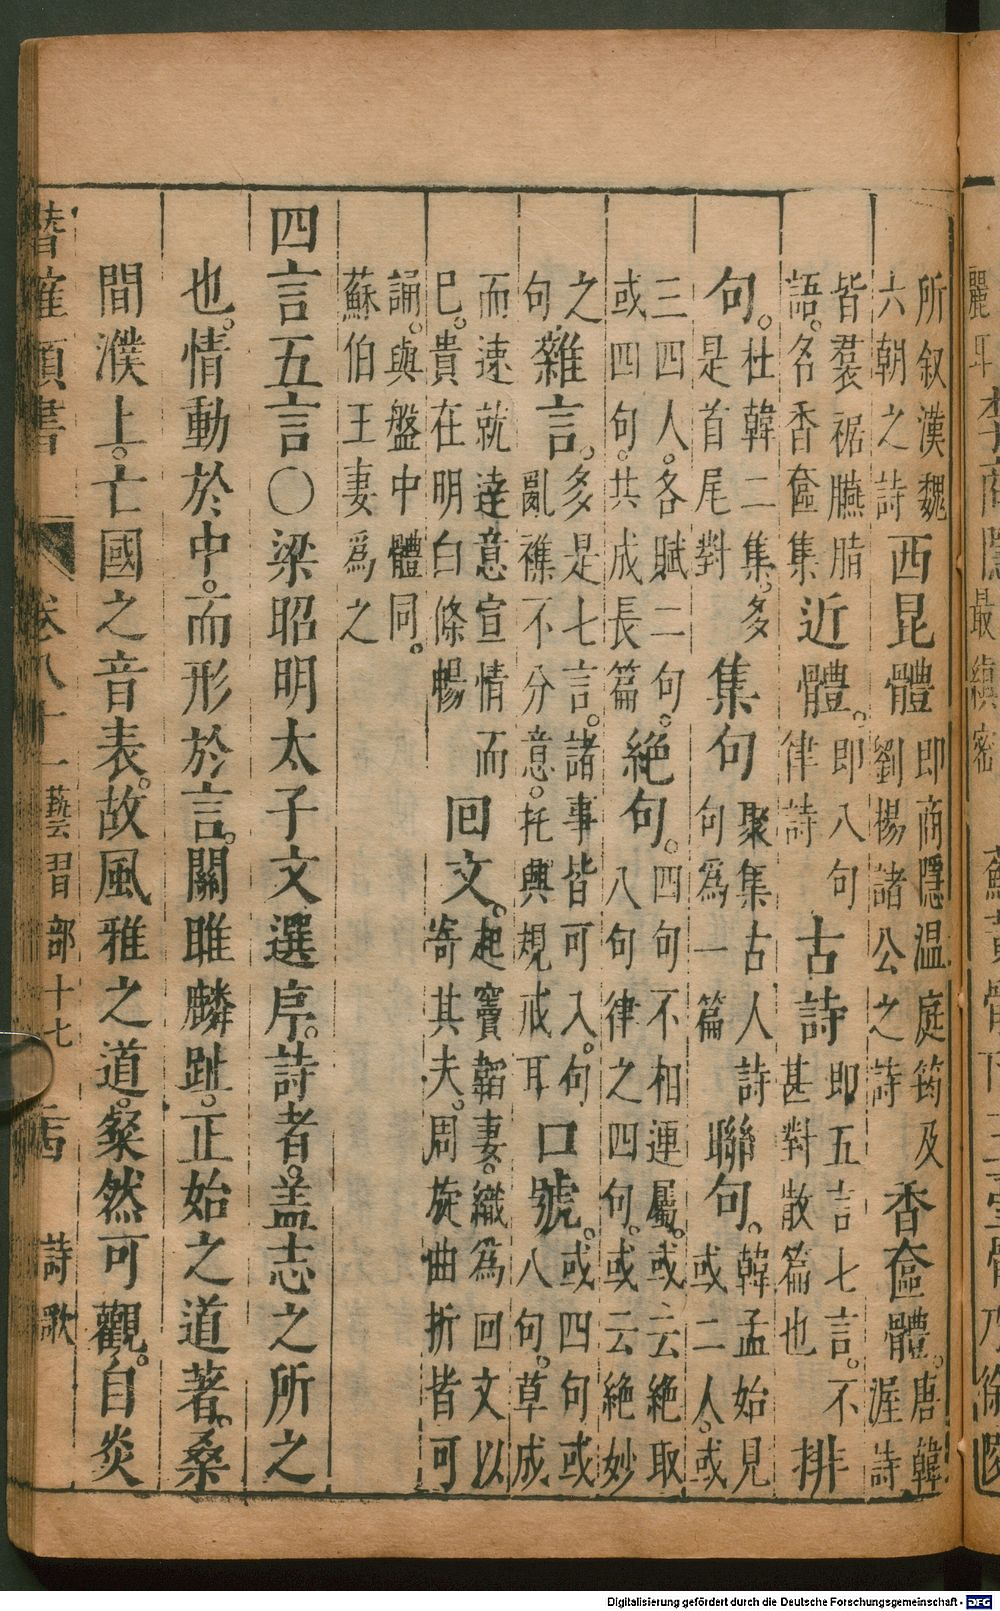 所叙漢魏
六朝之詩
西昆體
即商隱温庭筠及
劉楊諸公之詩
香奩體。
唐韓
渥詩
皆裠裾臙脂
語。名香奩集
近體。
即八句
律詩
古詩
即五言七言。不
甚對散篇也
排
句。
杜韓二集。多
是首尾對
集句
聚集古人詩
句爲一篇
聯句。
韓孟始見
或二人。或
三四人。各賦二句。
或四句。共成長篇
絶句。
四句不相連屬。或云絶取
八句律之四句。或云絶妙
之
句
雜言。
多是七言。諸事皆可入。句
亂襍不分意。托興規戒耳
口號。
或四句或
八句。草成
而速就達意宣情而
巳。貴在明白條暢
回文。
起竇韜妻。織為回文以
寄其夫。周旋曲折皆可
誦。與盤中體同。
蘇伯王妻爲之
四言五言〇梁昭明太子文選序。詩者。蓋志之所之
也。情動於中。而形於言。關雎麟趾。正始之道著。桑
間濮上。亡國之音表。故風雅之道。粲然可觀。自炎
卷八十一 藝習部十七 詩歌
Digitalisierung gefördert durch die Deutsche Forschungsgemeinschaft - DFG